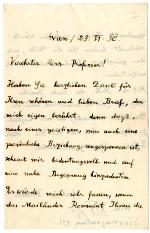 Wien / 23. VI. 36.
Verehrter Herr Professor!
Haben Sie herzlichen Dank für
Ihren schönen und lieben Brief, der
mich eigen berührt, denn dass
nach einer geistigen, nun auch eine
persönliche Beziehung angesponnen ist,
scheint mir bedeutungsvoll und auf
eine nahe Begegnung hinzudeuten.
Es würde mich sehr freuen, wenn
das Mailänder Konzert Ihnen die